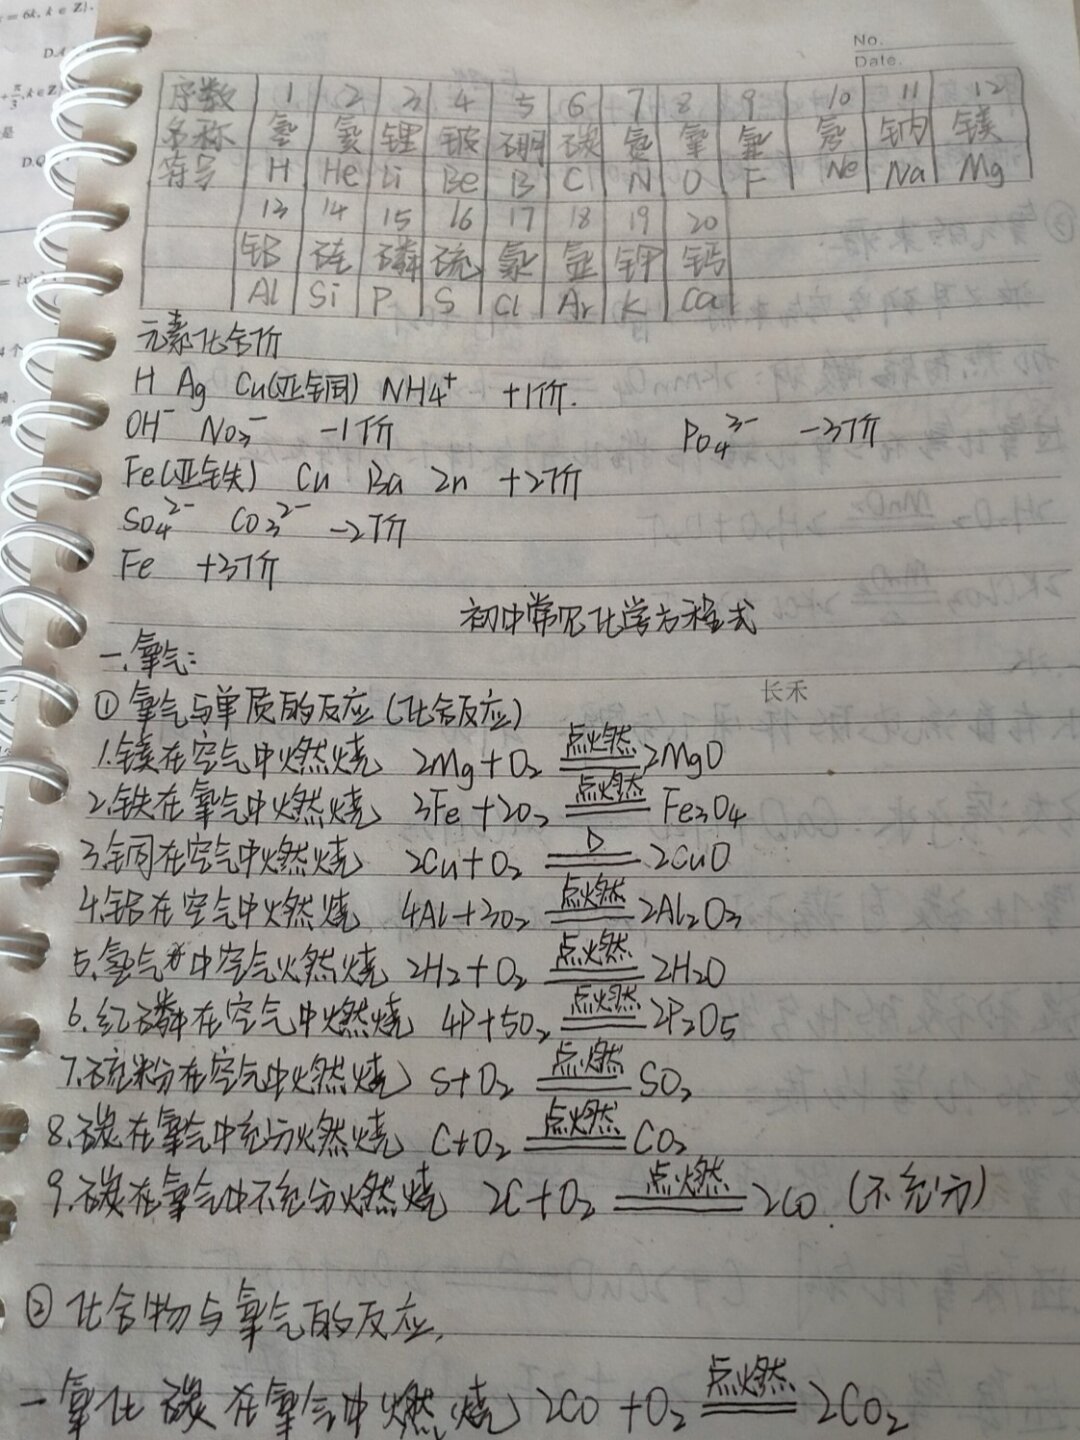 = 6k, k ∈ Z}.
No.
Date.
序数 1 2 3 4 5 6 7 8 9 10 11 12
名称 氢 氦 锂 铍 硼 碳 氮 氧 氟 氖 钠 镁
符号 H He Li Be B C N O F Ne Na Mg
13 14 15 16 17 18 19 20
铝 硅 磷 硫 氯 氩 钾 钙
Al Si P S Cl Ar K Ca
元素化合价
H Ag Cu(亚铜) NH4⁺ +1价.
OH⁻ NO₃⁻ -1价 PO₄³⁻ -3价
Fe(亚铁) Cu Ba Zn +2价
SO₄²⁻ CO₃²⁻ -2价
Fe +3价
初中常见化学方程式
一.氧气:
①氧气与单质的反应(化合反应)
长禾
1.镁在空气中燃烧 2Mg+O₂ 点燃 2MgO
2.铁在氧气中燃烧 3Fe+2O₂ 点燃 Fe₃O₄
3.铜在空气中燃烧 2Cu+O₂ △ 2CuO
4.铝在空气中燃烧 4Al+3O₂ 点燃 2Al₂O₃
5.氢气中空气燃烧 2H₂+O₂ 点燃 2H₂O
6.红磷在空气中燃烧 4P+5O₂ 点燃 2P₂O₅
7.硫粉在空气中燃烧 S+O₂ 点燃 SO₂
8.碳在氧气中充分燃烧 C+O₂ 点燃 CO₂
9.碳在氧气中不充分燃烧 2C+O₂ 点燃 2CO (不充分)
②化合物与氧气的反应.
一氧化碳在氧气中燃烧 2CO+O₂ 点燃 2CO₂